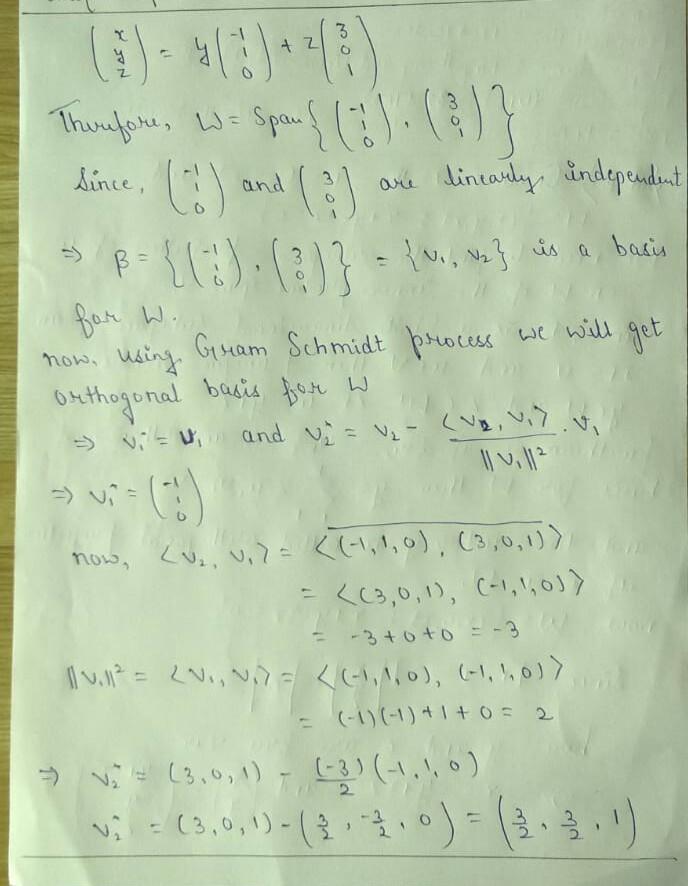 (x y z) = y(-1 1 0) + z(3 0 1)
Therefore, W = Span{(-1 1 0), (3 0 1)}
Since, (-1 1 0) and (3 0 1) are linearly independent
⇒ β = {(-1 1 0), (3 0 1)} = {v₁, v₂} is a basis
for W.
now, using Gram Schmidt process we will get
orthogonal basis for W
⇒ v₁* = v₁ and v₂* = v₂ - <v₂, v₁>/||v₁||² . v₁
⇒ v₁* = (-1 1 0)
now, <v₂, v₁> = <(-1,1,0), (3,0,1)>
= <(3,0,1), (-1,1,0)>
= -3+0+0 = -3
||v₁||² = <v₁, v₁> = <(-1,1,0), (-1,1,0)>
= (-1)(-1)+1+0 = 2
⇒ v₂* = (3,0,1) - (-3)/2 (-1,1,0)
v₂* = (3,0,1) - (3/2, -3/2, 0) = (3/2, 3/2, 1)